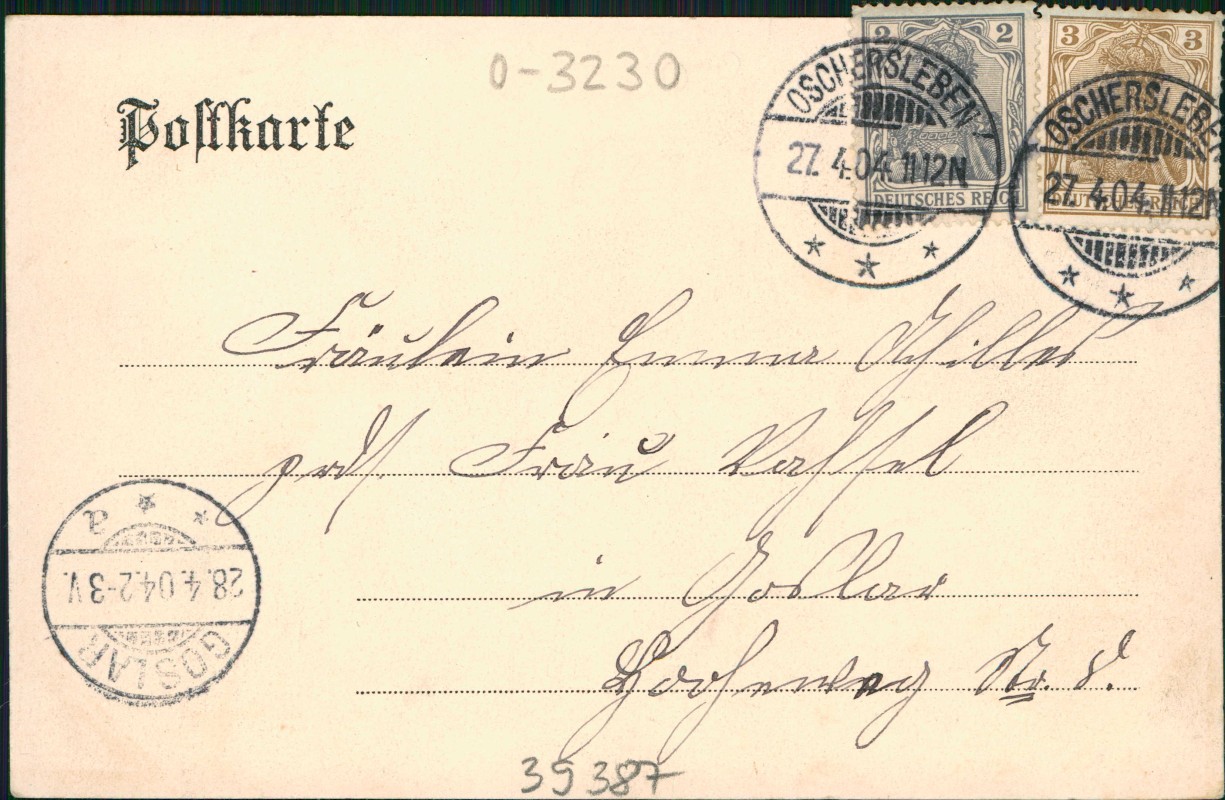 0-3230
Postkarte
2 2
DEUTSCHES REICH
3 3
DEUTSCHES REICH
OSCHERSLEBEN
27.4.04.11-12N
OSCHERSLEBEN
27.4.04.11-12N
Fräulein Emma Schilles
Frau
in Goslar
Hoheweg No. 8.
GOSLAR
28.4.04.2-3V.
a
39387